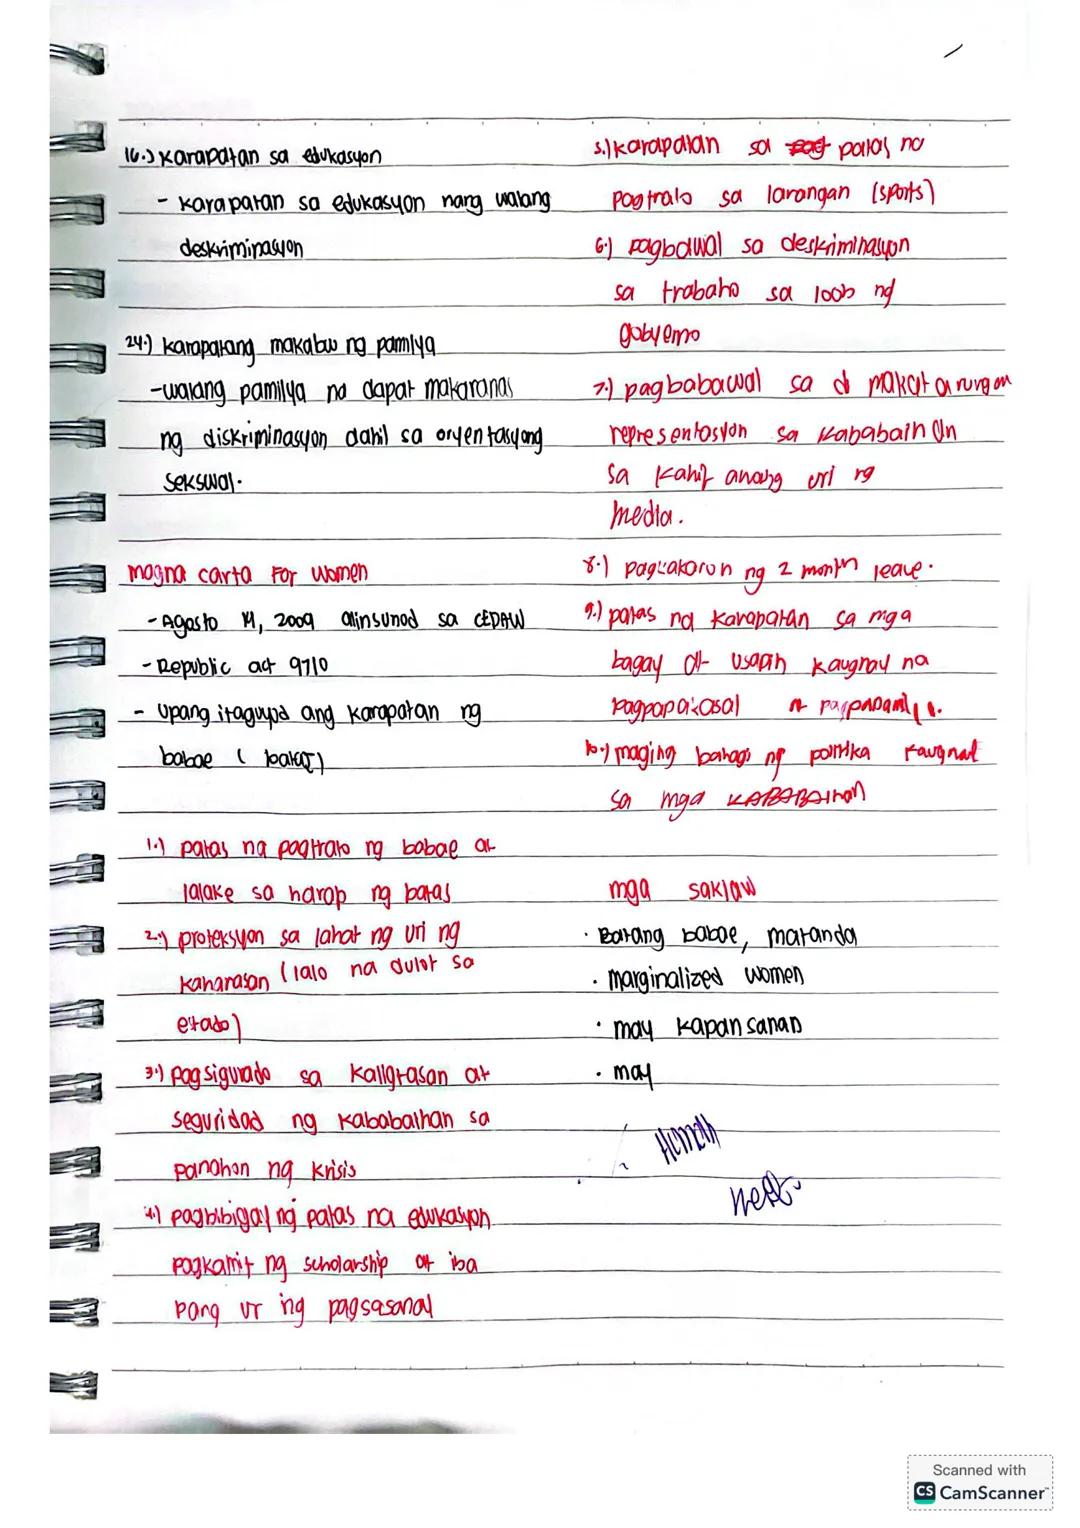 16.) Karapatan sa edukasyon
- karapatan sa edukasyon nang walang
deskriminasyon
24.) karapatang makabuo ng pamilya
- walang pamilya na dapat makaranas
ng diskriminasyon dahil sa oryentasyong
sekswal.
magna carta For women
- Agosto 14, 2009 alinsunod sa CEDAW
- Republic act 9710
- upang itaguyod ang karapatan ng
babae (
1.) patas na pagtrato ng babae at
lalake sa harap ng batas
2.) proteksyon sa lahat ng uri ng
kaharasan (lalo na dulot sa
estado)
3.) pagsigurado sa kaligtasan at
seguridad ng kababaihan sa
panahon ng krisis
4.) pagbibigay ng patas na edukasyon
pagkamit ng scholarship at iba
pang uri ng pagsasanay
5.) karapatan sa patas na
pagtrato sa larangan (sports)
6.) pagbawal sa deskriminasyon
sa trabaho sa loob ng
gobyerno
7.) pagbabawal sa di makatarungan
representasyon sa kababaihan
sa kahit anong uri ng
media.
8.) pagkakaron ng 2 month leave.
9.) patas na karapatan sa mga
bagay at usapin kaugnay na
pagpapakasal at pagpapamilya.
10.) maging bahagi ng politika kaugnat
sa mga KABABAIHAN
mga saklaw
· Batang babae, matanda
· marginalized women
· may kapansanan
· may
Scanned with
CS CamScanner